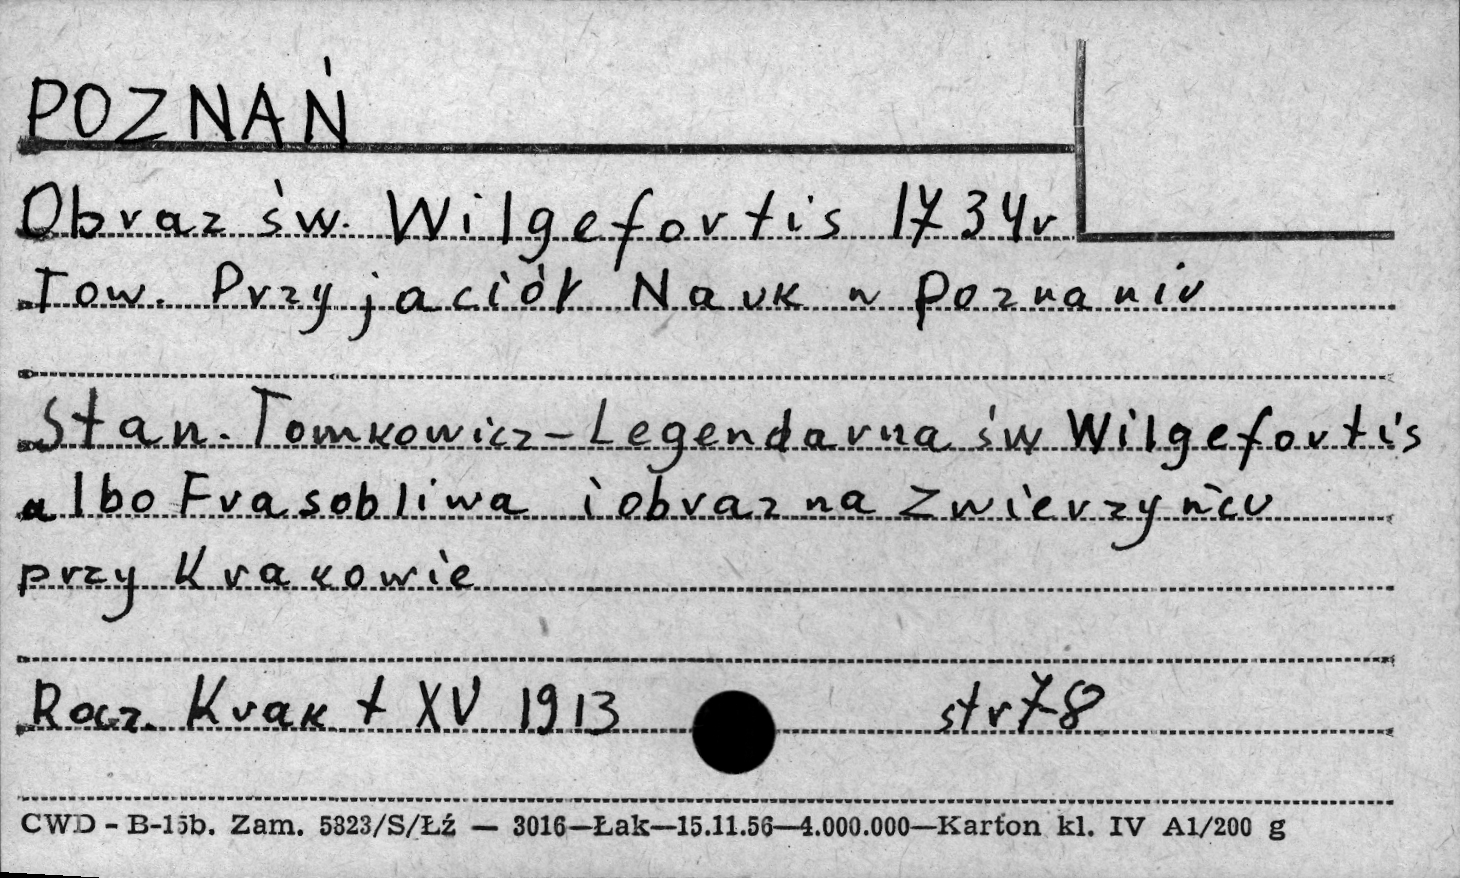 POZNAŃ
Obraz św. Wilgefortis 1734r
Tow. Przyjaciół Nauk w Poznaniu
Stan. Tomkowicz – Legendarna św Wilgefortis
albo Frasobliwa i obraz na Zwierzyńcu
przy Krakowie
Rocz. Krak t XV 1913 str 78
CWD - B-15b. Zam. 5823/S/Łź — 3016—Łak—15.11.56—4.000.000—Karton kl. IV A1/200 g